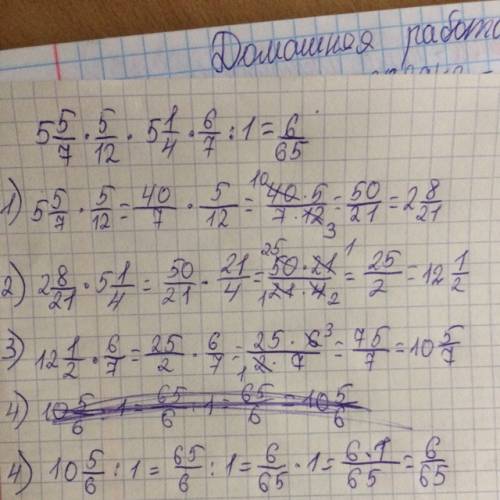 Домашняя работа
5 5/7 · 5/12 · 5 1/4 · 6/7 : 1 = 6/65
1) 5 5/7 · 5/12 = 40/7 · 5/12 = 10 40·5/7·12 3 = 50/21 = 2 8/21
2) 2 8/21 · 5 1/4 = 50/21 · 21/4 = 25 50·21 1/1 21·4 2 = 25/2 = 12 1/2
3) 12 1/2 · 6/7 = 25/2 · 6/7 = 25·6 3/1 2·7 = 75/7 = 10 5/7
4) 10 5/6 : 1 = 65/6 : 1 = 65/6 = 10 5/6
4) 10 5/6 : 1 = 65/6 : 1 = 6/65 · 1 = 6·1/65 = 6/65